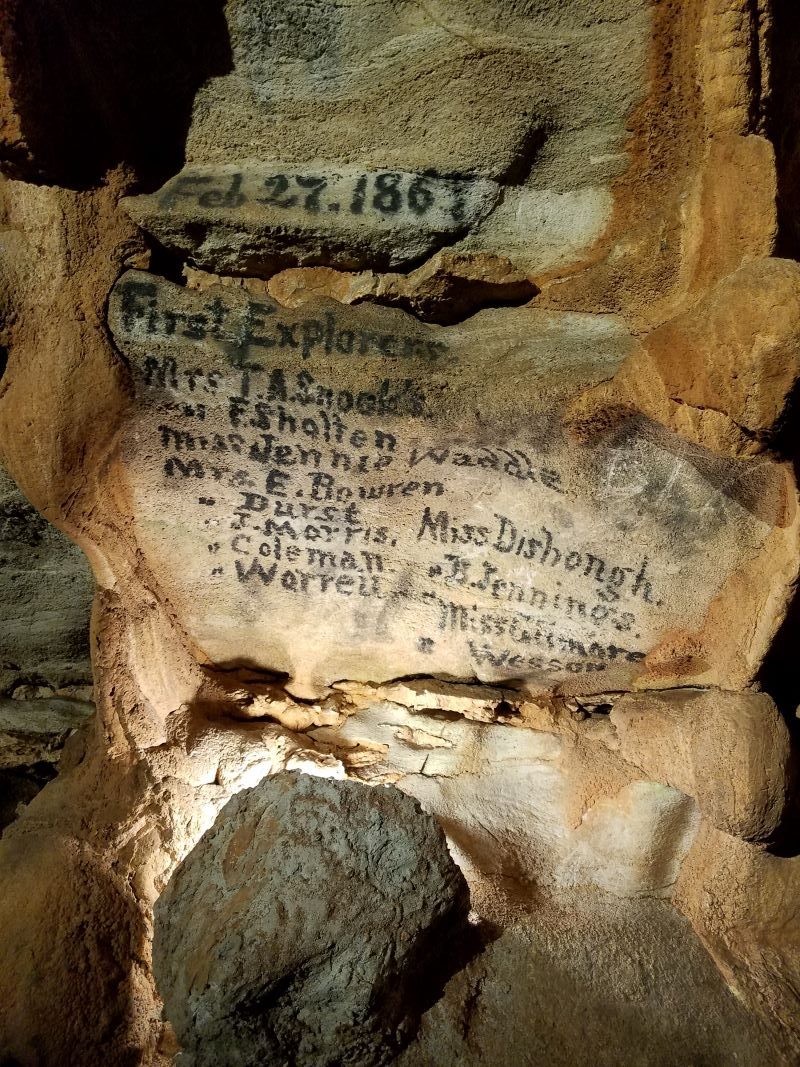 Feb 27. 1867
First Explorers.
Mrs T.A.Snoddds.
" F.Shalten
Miss Jennie Waddle
Mrs. E. Bowren
" Durst
" J.Morris. Miss Dishongh.
" Coleman " B.Jennings.
" Worrell " Miss Gilmore
" Wesson